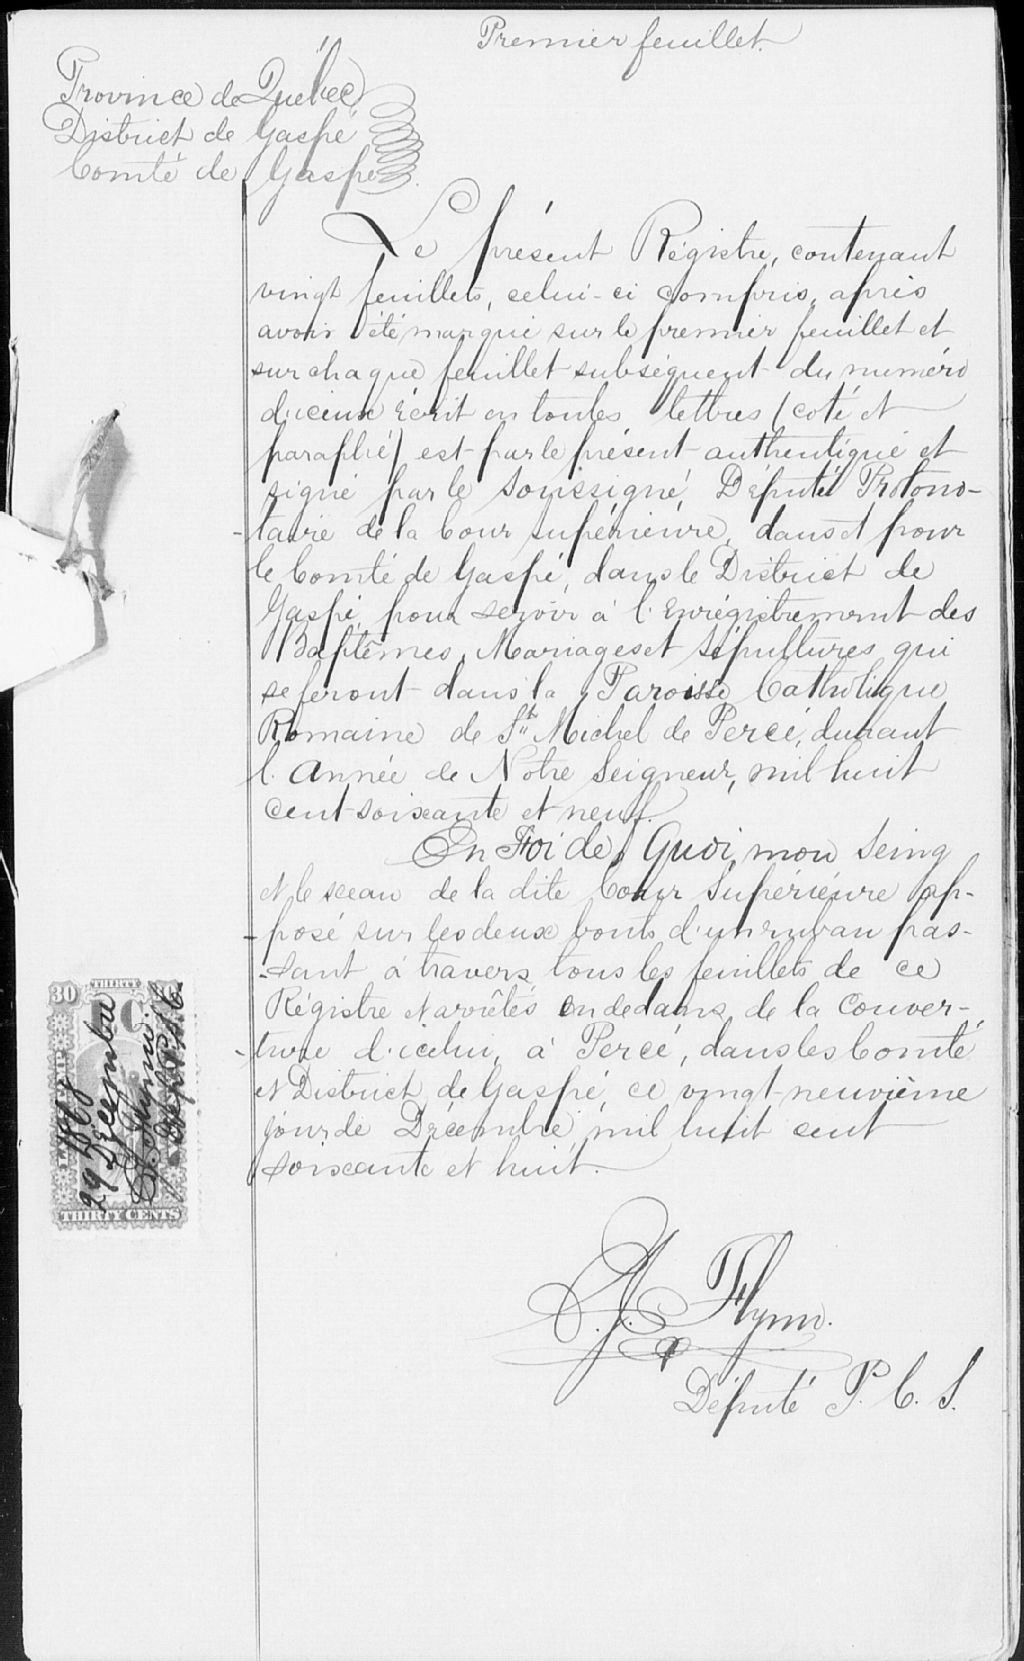 Premier feuillet.
Province de Québec
District de Gaspé
Comté de Gaspé
Le présent Régistre, contenant
vingt feuillets, celui-ci compris, après
avoir été marqué sur le premier feuillet et
sur chaque feuillet subséquent du numéro
d'iceux écrit en toutes lettres (coté et
paraphé) est par le présent authentiqué et
signé par le Soussigné, Député Protono-
-taire de la Cour Supérieure, dans et pour
le Comté de Gaspé, dans le District de
Gaspé, pour servir à l'Enrégistrement des
Baptêmes, Mariages et Sépultures qui
se feront dans la Paroisse Catholique
Romaine de St. Michel de Percé, durant
l'Année de Notre Seigneur, mil huit
cent soixante et neuf.
En Foi de Quoi, mon Seing
et le sceau de la dite Cour Supérieure ap-
-posé sur les deux bouts d'un ruban pas-
-sant à travers tous les feuillets de ce
Régistre et arrêtés en dedans de la Couver-
-ture d'icelui, à Percé, dans les Comté
et District de Gaspé, ce vingt-neuvième
jour de Décembre mil huit cent
soixante et huit.
J. Flynn.
Député P. C. S.
30 THIRTY 30
C
LAW STAMP
29 Décembre
J. Flynn.
Dép. P. C. S.
THIRTY CENTS